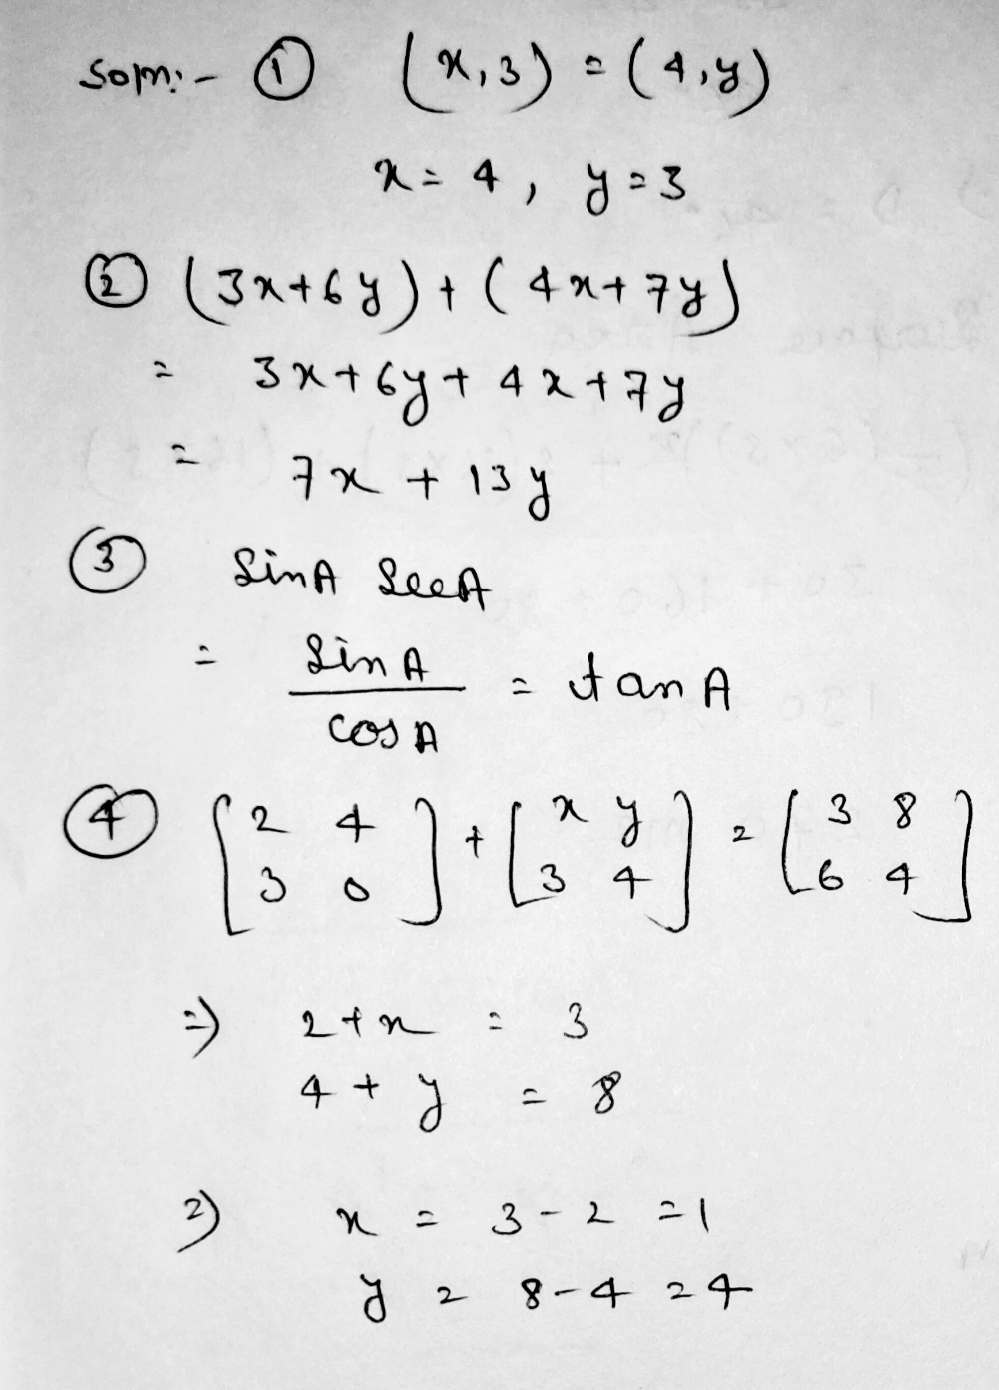 Soln:- ① (x,3) = (4,y)
x = 4, y = 3
② (3x+6y) + (4x+7y)
= 3x+6y+4x+7y
= 7x + 13y
③ SinA SecA
= Sin A / Cos A = tan A
④ [2 4; 3 0] + [x y; 3 4] = [3 8; 6 4]
⇒ 2+x = 3
4+y = 8
⇒ x = 3-2 = 1
y = 8-4 = 4